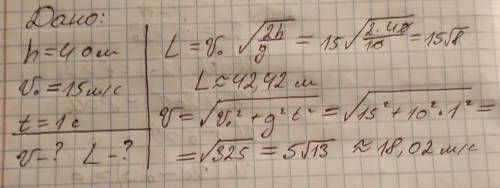 Дано:
h = 40 м
v₀ = 15 м/с
t = 1 с
v - ? L - ?
L = v₀ √(2h/g) = 15 √(2·40/10) = 15√8
L ≈ 42,42 м
v = √(v₀² + g²t²) = √(15² + 10²·1²) =
= √325 = 5√13 ≈ 18,02 м/с